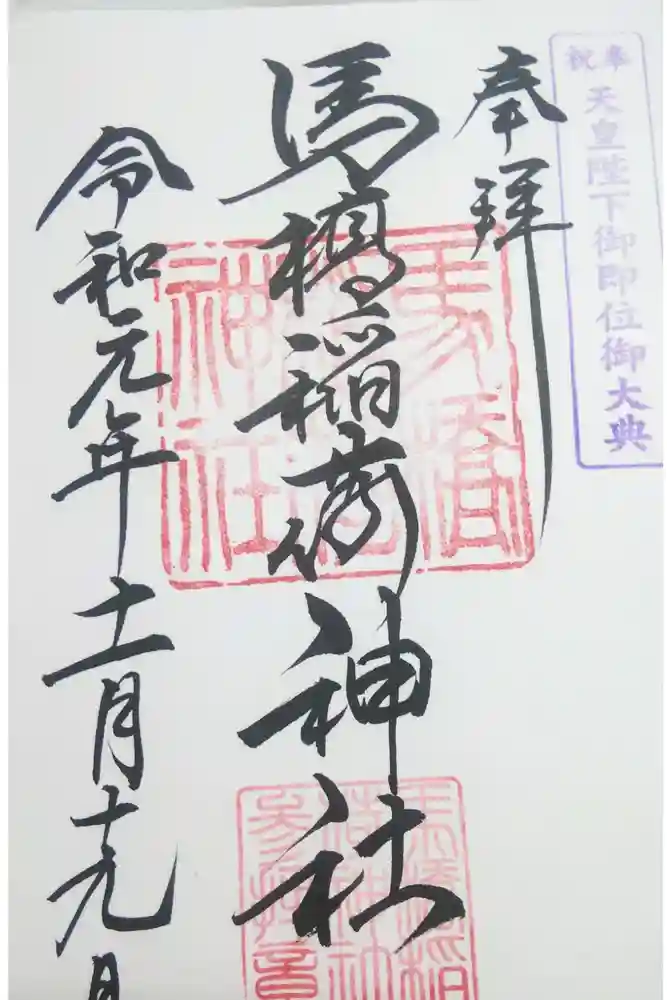 奉祝
天皇陛下御即位御大典
奉拝
馬橋稲荷神社
令和元年十一月十九日
馬橋
稲荷
神社
馬橋稲
荷神社
参拝章